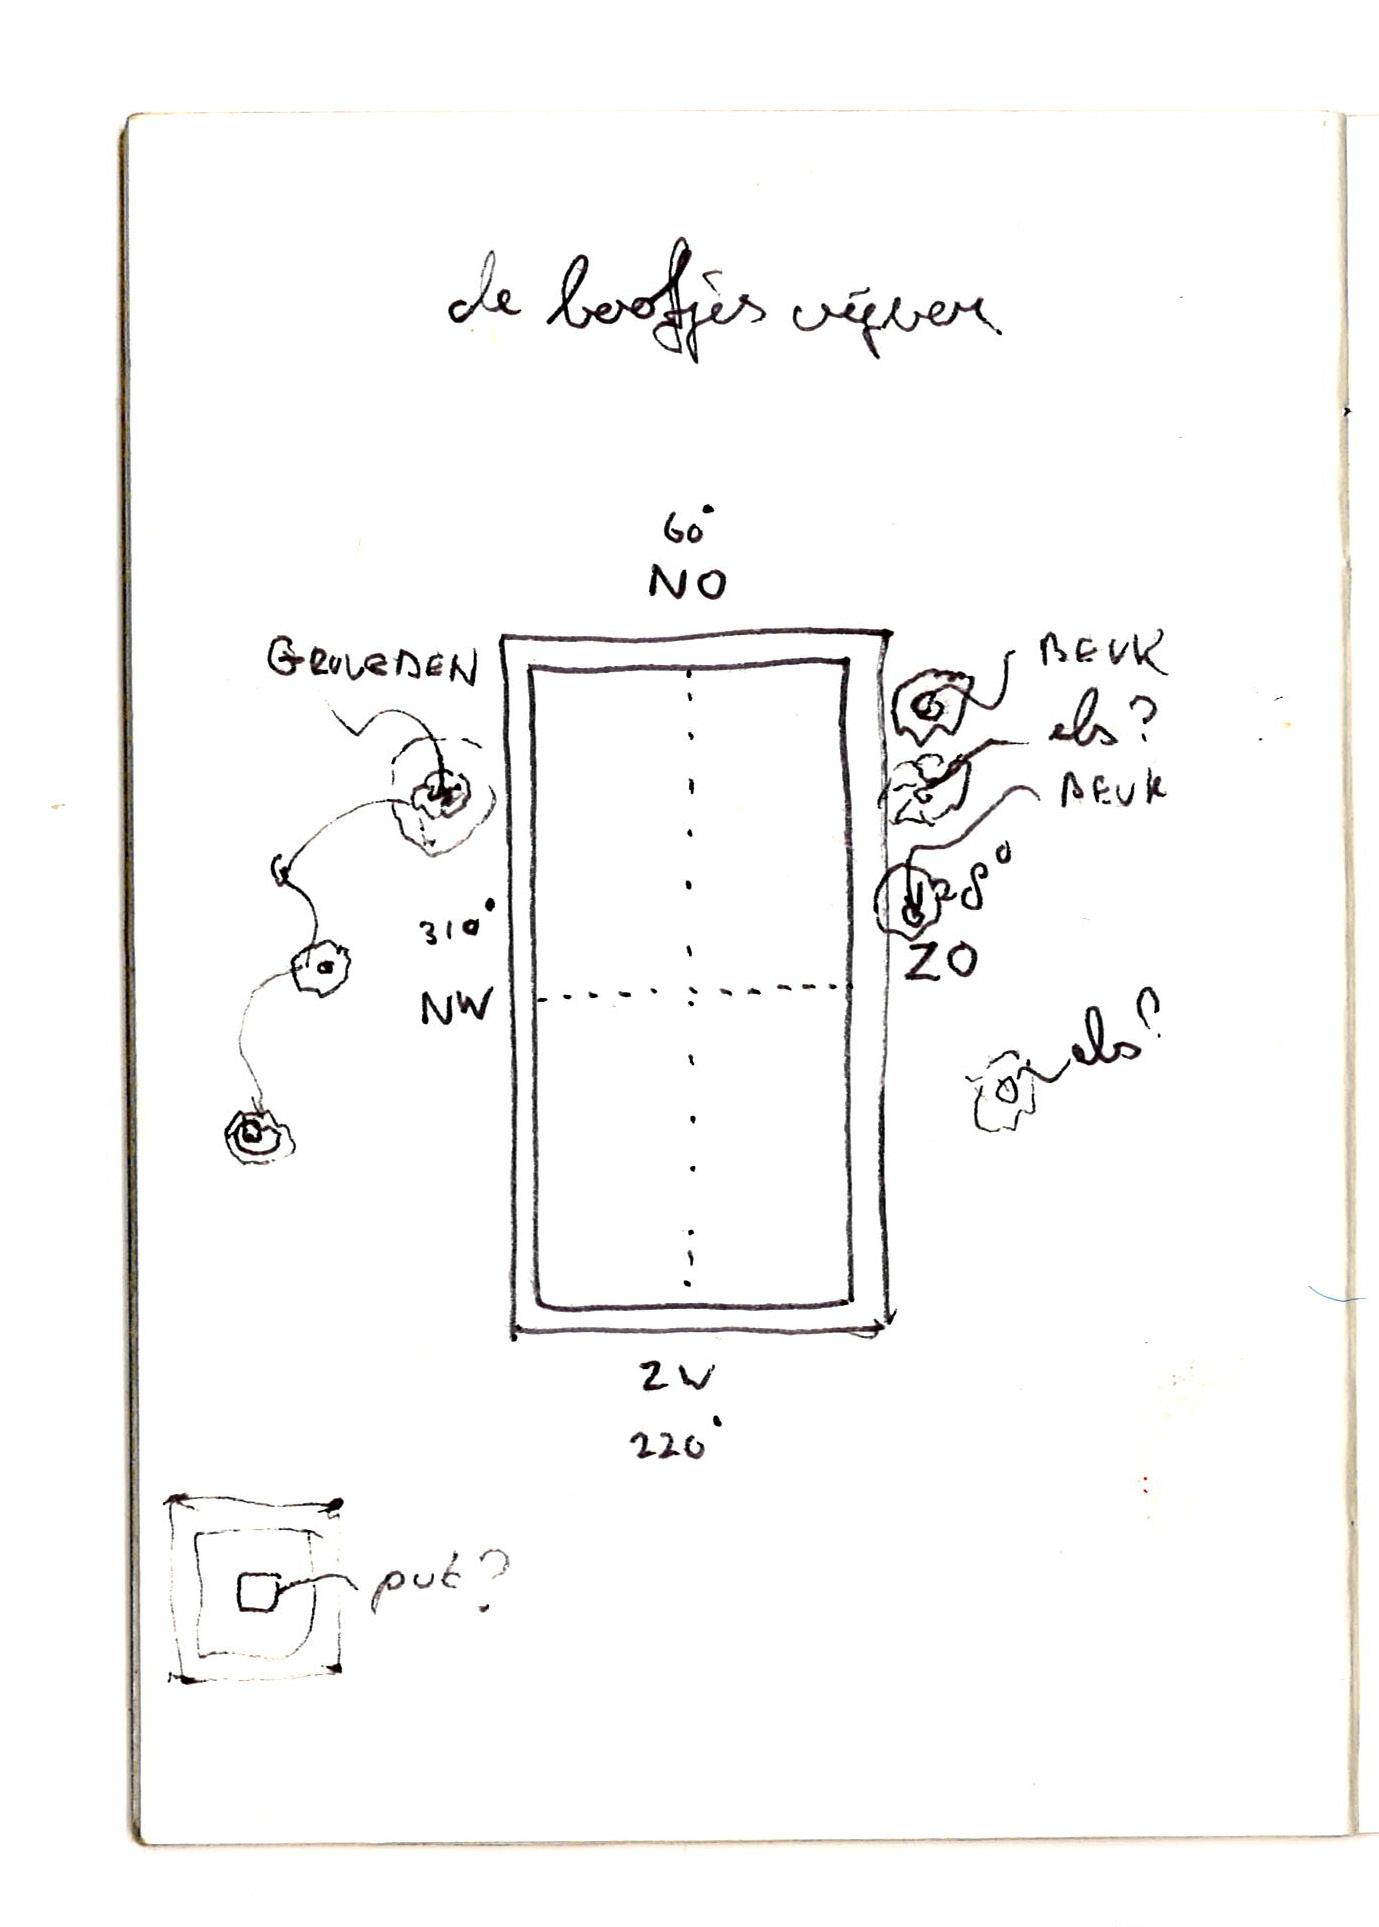 de bootjes vijver
60°
NO
BEUK
els?
BEUK
28°
310°
ZO
NW
els?
ZW
220°
put?